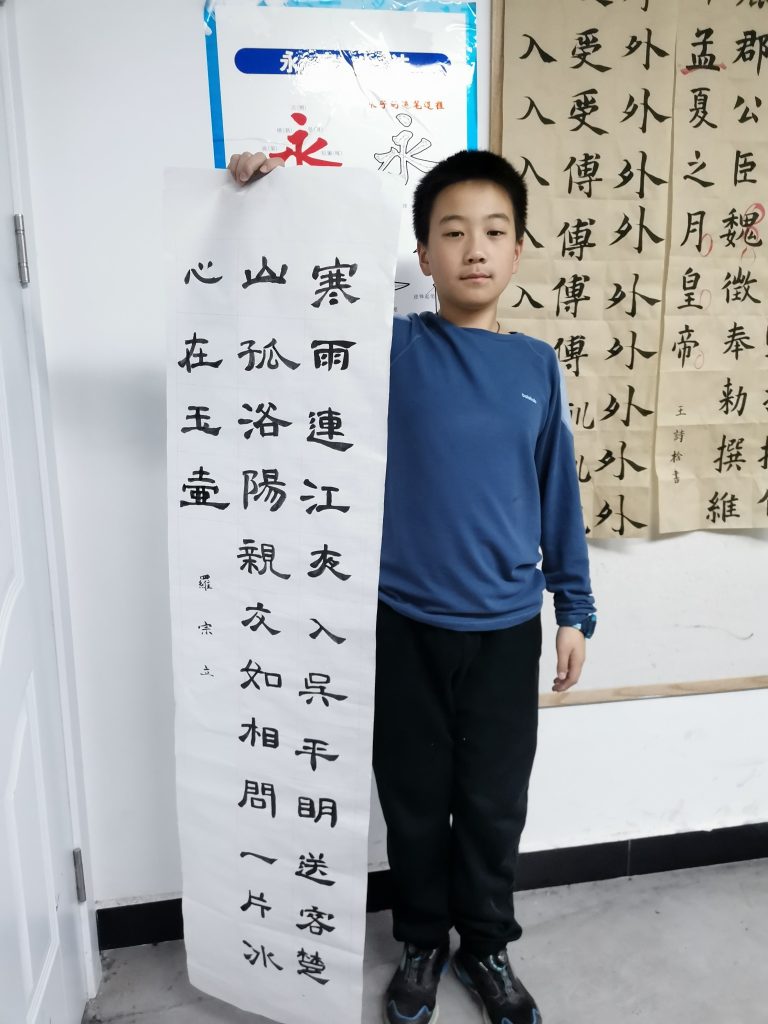 寒雨連江夜入吳平明送客楚
山孤洛陽親友如相問一片冰
心在玉壷
羅宗立
永
永
郡公臣魏徵奉勅撰維
孟夏之月皇帝
王詩松書
外外外外外外外外外
受受傅傅傅傅
入入入入入